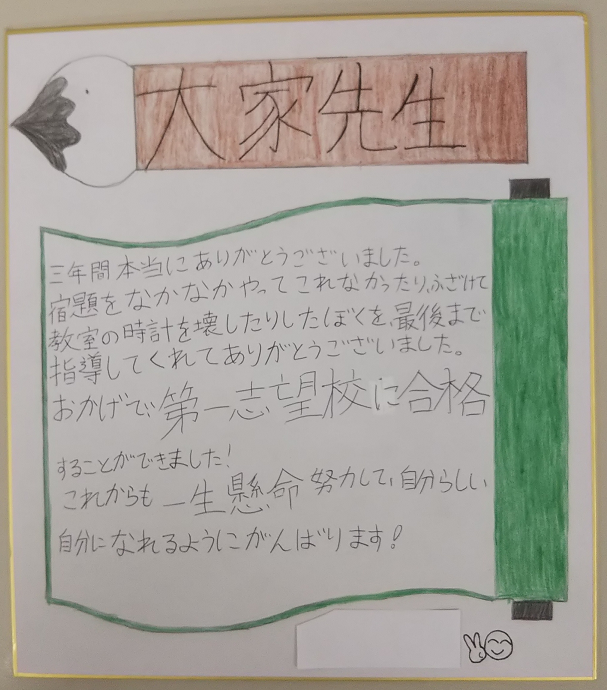 大家先生
三年間本当にありがとうございました。
宿題をなかなかやってこれなかったり、ふざけて
教室の時計を壊したりしたぼくを、最後まで
指導してくれてありがとうございました。
おかげで、第一志望校に合格
することができました!
これからも一生懸命努力して、自分らしい
自分になれるようにがんばります!